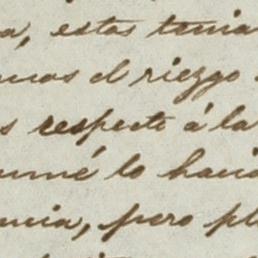 a, estas tenia
el riezgo
s respecto á la
umé lo hacia
ncia, pero